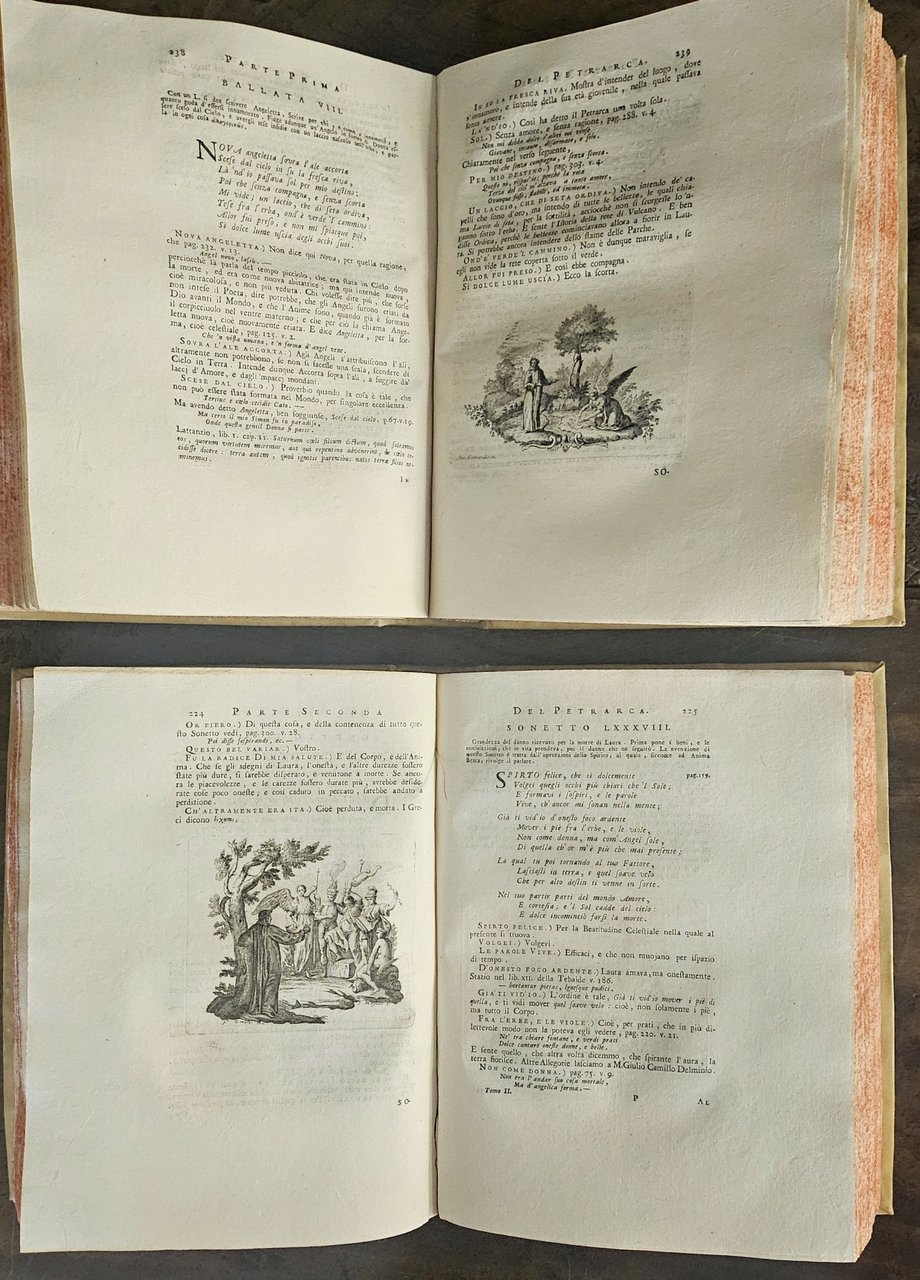 238
PARTE PRIMA
BALLATA VIII.
NOVA angeletta sovra l'ale accorta
Scese dal cielo in su la fresca riva,
Là 'nd'io passava sol per mio destino:
Poi che senza compagna, e senza scorta
Mi vide; un laccio, che di seta ordiva,
Tese fra l'erba, ond'è verde 'l cammino:
Allor fui preso; e non mi spiacque poi,
Sì dolce lume uscia degli occhi suoi.
NOVA ANGELETTA.) Non dice qui Nova, per quella ragione,
che pag. 232. v. 13.
Angel novo, lassù. —
perciocchè là parla del tempo picciolo, che era stata in Cielo dopo
la morte, ed era come nuova abitatrice; ma qui intende nuova,
cioè miracolosa, e non più veduta. Chi volesse dire più, che forse
non intese il Poeta, dire potrebbe, che gli Angeli furono criati da
Dio avanti il Mondo, e che l'Anime sono, quando già è formato
il corpicciuolo nel ventre materno; e che per ciò la chiama Ange-
letta nuova, cioè nuovamente criata. E dice Angeletta, per la for-
ma, cioè celestiale, pag. 125. v. 2.
Che 'n vista umana, e 'n forma d'angel vene.
SOVRA L'ALE ACCORTA.) Agli Angeli s'attribuiscono l'ali,
altramente non potrebbono, se non si facesse una scala, scendere di
Cielo in Terra. Intende dunque Accorta sopra l'ali, a fuggire da'
lacci d'Amore, e dagl'impacci mondani.
SCESE DAL CIELO.) Proverbio quando la cosa è tale, che
non può essere stata formata nel Mondo, per singolare eccellenza.
Tertius e cœlo cecidit Cato. —
Ma avendo detto Angeletta, ben soggiunse, Scese dal cielo. p.67.v.19.
Ma certo il mio Simon fu in paradiso,
Onde questa gentil Donna si parte.
Lattanzio, lib. 1. cap. 11. Saturnum cœli filium dictum, quod soleamus
eos, quorum virtutem miremur, aut qui repentino advenerint, de cœlo ce-
cidisse dicere: terra autem, quod ignotis parentibus natos terræ filios no-
minemus.
IN
239
DEL PETRARCA.
IN SU LA FRESCA RIVA. Mostra d'intender del luogo, dove
s'innamorò, e intende della sua età giovenile, nella quale passava
senza amore.
LA'ND'IO.) Così ha detto il Petrarca una volta sola.
SOL.) Senza amore, e senza ragione, pag. 288. v. 4.
Giovane, incauto, disarmato, e solo.
Chiaramente nel verso seguente,
Poi che senza compagna, e senza scorta.
PER MIO DESTINO.) pag. 303. v. 4.
Questo nò, rispos'io; perchè la rota
Terza del ciel m'alzava a tanto amore,
Ovunque fosse, stabile, ed immota.
UN LACCIO, CHE DI SETA ORDIVA.) Non intendo de' ca-
pelli che sono d'oro, ma intendo di tutte le bellezze, le quali chia-
ma Laccio di seta, per la sottilità, acciocchè non si scorgesse lo 'n-
ganno sotto l'erba. E sente l'Istoria della rete di Vulcano. E ben
disse Ordiva, perchè le bellezze cominciavano allora a fiorir in Lau-
ra. Si potrebbe ancora intendere dello stame delle Parche.
OND'E' VERDE 'L CAMMINO.) Non è dunque maraviglia, se
egli non vide la rete coperta sotto il verde.
ALLOR FUI PRESO.) E così ebbe compagna.
SI DOLCE LUME USCIA.) Ecco la scorta.
SO-
224
PARTE SECONDA
OR FIERO.) Di questa cosa, e della contenenza di tutto que-
sto Sonetto vedi, pag. 300. v. 28.
Poi disse sospirando, ec. —
QUESTO BEL VARIAR.) Vostro.
FU LA RADICE DI MIA SALUTE.) E del Corpo, e dell'Ani-
ma. Che se gli sdegni di Laura, l'onestà, e l'altre durezze fossero
state più dure, si sarebbe disperato, e venutone a morte. Se anco-
ra le piacevolezze, e le carezze fossero durate più, avrebbe deside-
rate cose poco oneste; e così caduto in peccato, sarebbe andato a
perdizione.
CH'ALTRAMENTE ERA ITA.) Cioè perduta, e morta. I Gre-
ci dicono
SO-
DEL PETRARCA.
225
SONETTO LXXXVIII.
Grandezza del danno ricevuto per la morte di Laura. Prima pone i beni, e le
consolazioni, che in vita prendeva, poi il danno che ne seguitò. La 'nvenzione di
questo Sonetto è tratta dall'operazioni dello Spirito, al quale, siccome ad Anima
Beata, rivolge il parlare.
SPIRTO felice, che sì dolcemente pag.159.
Volgei quegli occhi più chiari che 'l Sole,
E formavi i sospiri, e le parole
Vive, ch'ancor mi sonan nella mente;
Già ti vid'io d'onesto foco ardente
Mover i piè fra l'erbe, e le viole,
Non come donna, ma com'Angel sole,
Di quella ch'or m'è più che mai presente;
La qual tu poi tornando al tuo Fattore,
Lasciasti in terra, e quel soave velo
Che per alto destin ti venne in sorte.
Nel tuo partir partì del mondo Amore,
E cortesia; e 'l Sol cadde del cielo:
E dolce incominciò farsi la morte.
SPIRTO FELICE.) Per la Beatitudine Celestiale nella quale al
presente si truova.
VOLGEI.) Volgevi.
LE PAROLE VIVE.) Efficaci, e che non muojano per ispazio
di tempo.
D'ONESTO FOCO ARDENTE.) Laura amava, ma onestamente.
Stazio nel lib. XII. della Tebaide v. 186.
— hortantur pietas, ignesque pudici.
GIA' TI VID'IO.) L'ordine è tale, Già ti vid'io mover i piè di
quella, e ti vidi mover quel soave velo: cioè, non solamente i piè,
ma tutto il Corpo.
FRA L'ERBE, E LE VIOLE.) Cioè, per prati, che in più di-
lettevole modo non la poteva egli vedere, pag. 220. v. 21.
Nè tra chiare fontane, e verdi prati
Dolce cantare oneste donne, e belle.
E sente quello, che altra volta dicemmo, che spirante l'aura, la
terra fiorisce. Altre Allegorie lasciamo a M. Giulio Camillo Delminio.
NON COME DONNA.) pag. 75. v. 9.
Non era l'andar suo cosa mortale,
Ma d'angelica forma. —
Tomo II. P AL